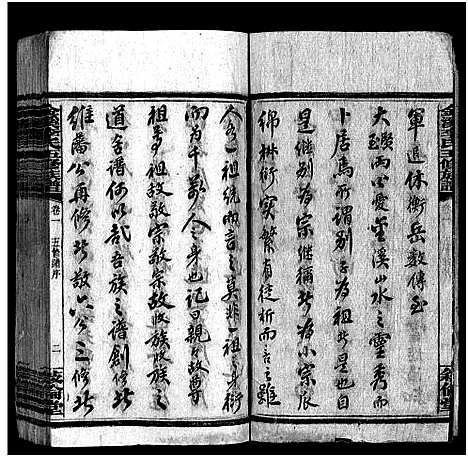 軍退休衡岳數傳至
大鑌而公愛金溪山水之靈秀而
卜居焉所謂别子為祖者是也自
是繼别為宗繼禰者為小宗辰
綿椒衍實繁有徒析而言之雖
人各一祖統而言之莫非一祖之身衍
而為千萬人之身也記曰親親故尊
祖尊祖故敬宗敬宗故收族收族之
道舍譜何以哉吾族之譜創修者
維藩公再修者敬六公三修者
卷一
五修譜序
二